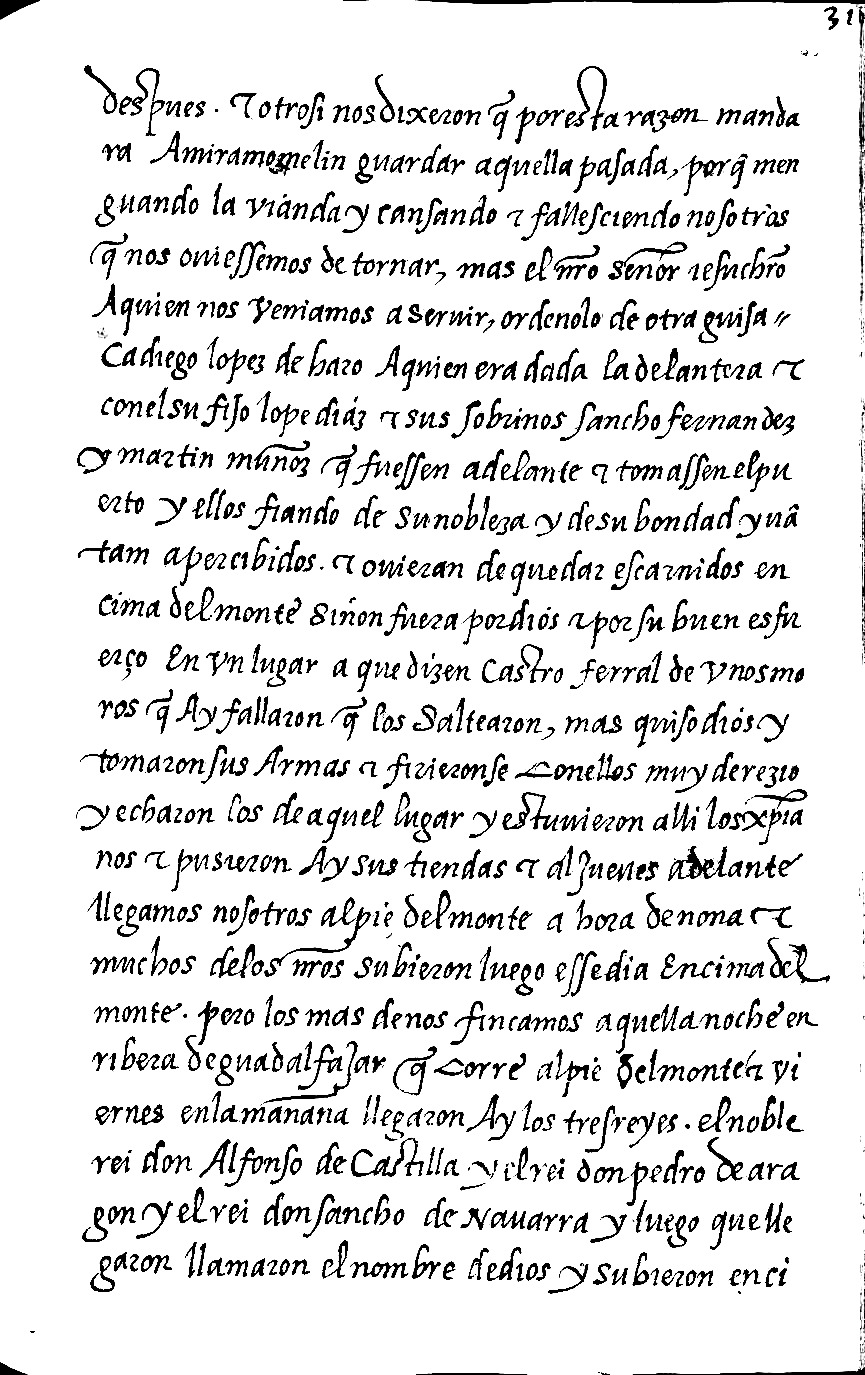 31
despues. ⁊ otrosi nos dixeron q̃ por esta razon manda
ra Amiramomelin guardar aquella pasada, porq̃ men
guando la vianda y cansando ⁊ fallesciendo nosotros
q̃ nos oviessemos de tornar, mas el nr̃o señor iesuchr̃o
Aquien nos veniamos a servir, ordenolo de otra guisa //
Ca diego lopez de haro Aquien era dada la delantera ⁊
con el su fijo lope diáz ⁊ sus sobrinos sancho fernandez
y martin muñoz q̃ fuessen adelante ⁊ tomassen el pu
erto y ellos fiando de su nobleza y de su bondad yuã
tam apercibidos. ⁊ ovieran de quedar escarnidos en
cima del monte Sinon fuera por diós ⁊ por su buen esfu
erço En vn lugar a que dizen Castro ferral de vnos mo
ros q̃ Ay fallaron q̃ los Saltearon, mas quiso diós y
tomaron sus Armas ⁊ firieronse Con ellos muy derezio
y echaron los de aquel lugar y estuuieron alli los xp̃ia
nos ⁊ pusieron Ay sus tiendas ⁊ al Jueues adelante
llegamos nosotros al pie del monte a hora de nona ⁊
muchos de los nr̃os subieron luego esse dia Encima del
monte. pero los mas de nos fincamos aquella noche en
ribera de guadalfajar q̃ Corre al pie del monte ⁊ vi
ernes en la mañana llegaron Ay los tres reyes. el noble
rei don Alfonso de Castilla y el rei don pedro de ara
gon y el rei don sancho de Nauarra y luego que lle
garon llamaron el nombre de dios y subieron enci